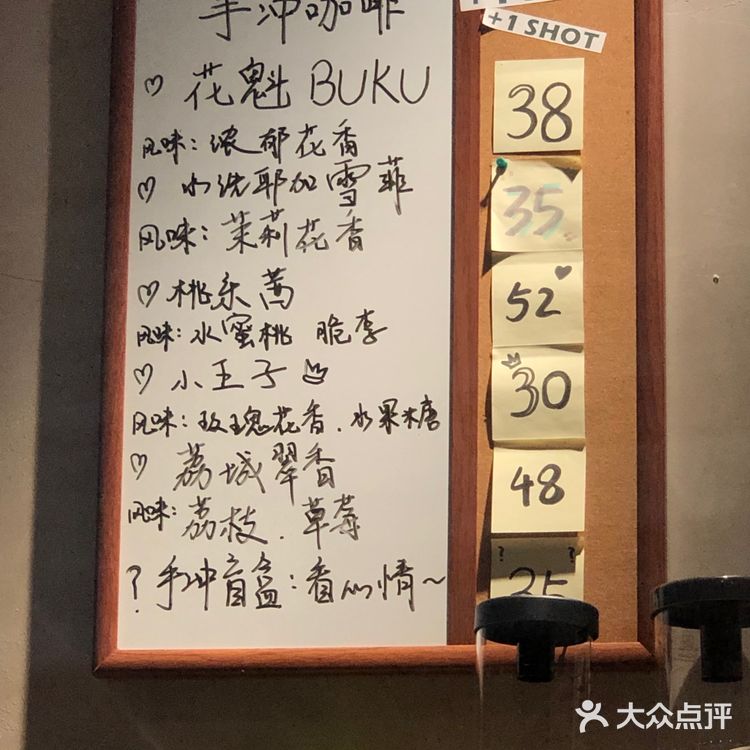 手冲咖啡
+1 SHOT
♡ 花魁 BUKU
38
风味：浓郁花香
♡ 水洗耶加雪菲
35
风味：茉莉花香
♡ 桃乐蒿
52
风味：水蜜桃 脆李
♡ 小王子
30
风味：玫瑰花香．水果糖
♡ 荔城翠香
48
风味：荔枝．草莓
? 手冲盲盒：看心情~
? ?
35
大众点评